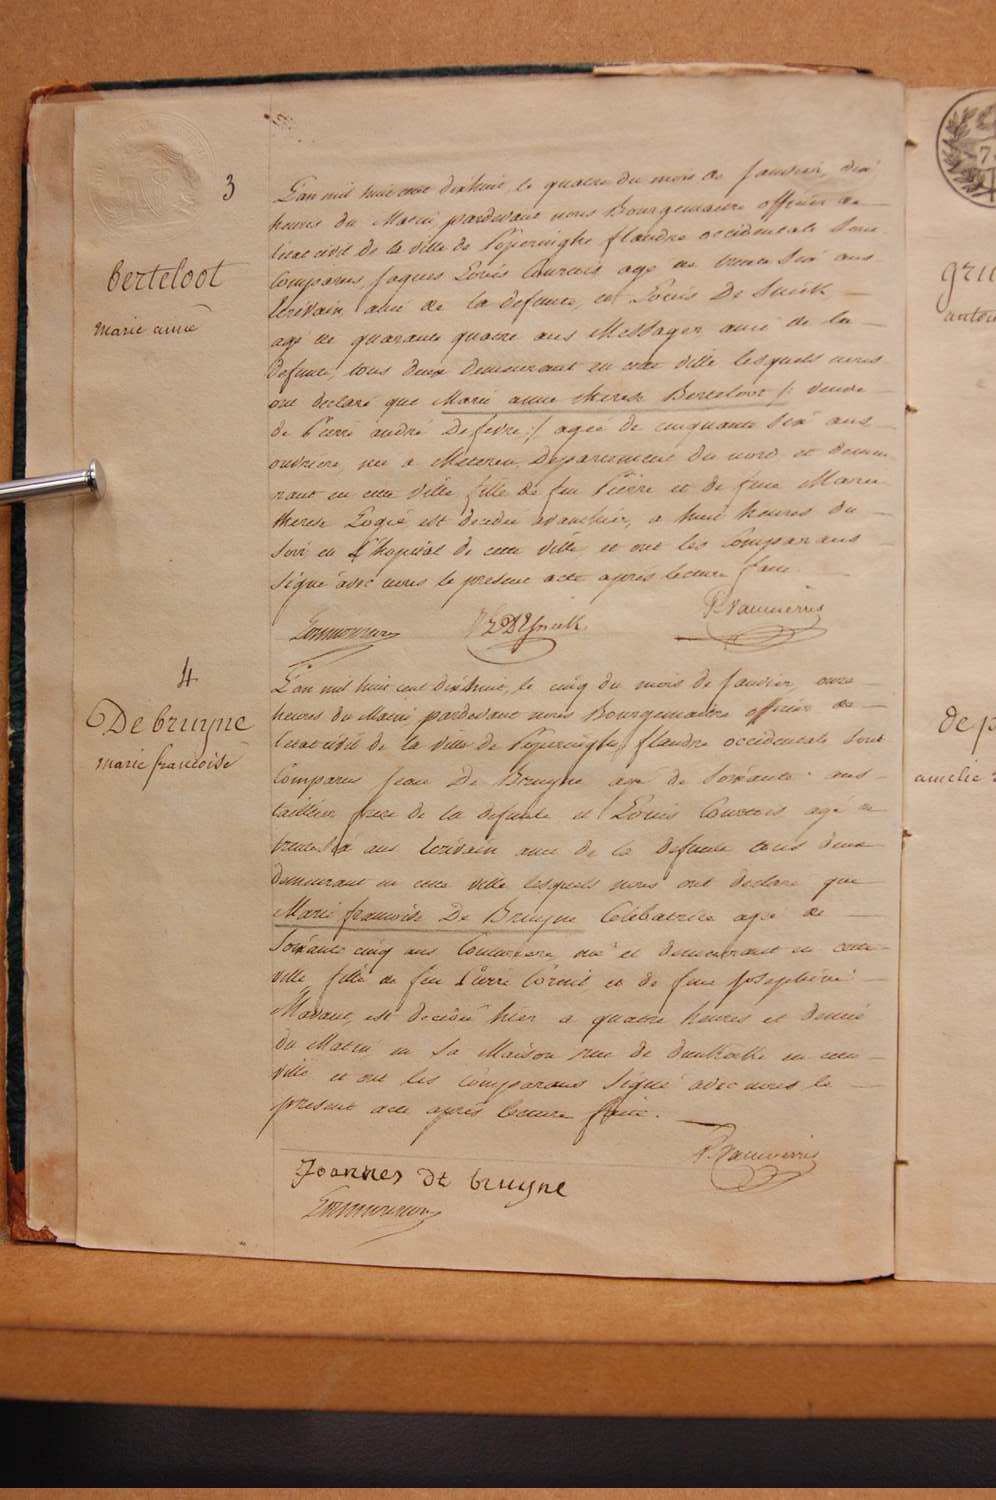 3
L'an mil huit cent dixhuit, le quatre du mois de Janvier, dix
heures du Matin pardevant nous Bourgemaitre officier de
l'etat civil de la ville de Poperinghe flandre occidentale Sont
Comparus Jaques Louis Courtois agé de trente Six ans
Ecrivain ami de la defunte, et Louis De Snick
agé de quarante quatre ans Messager ami de la
defunte, tous deux demeurant en cette ville lesquels nous
ont declaré que Marie anne therese Berteloot /: veuve
de Pierre andré Defevre :/ agée de cinquante Six ans
ouvriere, née a Meteren Departement du nord et demeu
rant en cette ville fille de feu Pierre et de feue Marie
therese Logié, est decedée avanthier, a huit heures du
Soir en l'hopital de cette ville et ont les Comparans
Signé avec nous le present acte aprés lecture faite.
berteloot
marie anne
L D Snick
P. Vanmerris
4
L'an mil huit cent dixhuit, le cinq du mois de Janvier, onze
heures du Matin, pardevant nous Bourgemaitre officier de
l'etat civil de la ville de Poperinghe, flandre occidentale Sont
Comparus Jean De Bruyne agé de Soixante ans
taillieur frere de la defunte et Louis Courtois agé de
trente Six ans Ecrivain ami de la defunte tous deux
demeurant en cette ville lesquels nous ont declaré que
Marie francoise De Bruyne Celibatrice agée de
Soixante cinq ans Couturiere née et demeurant en cette
ville fille de feu Pierre Cornil, et de feue Josephine
est decedée hier a quatre heures et demie
du Matin en Sa Maison rue de en cette
ville et ont les Comparans Signé avec nous le
present acte aprés lecture faite.
De bruyne
marie francoise
P. Vanmerris
Joannes de bruyne
gru
de p
amelie